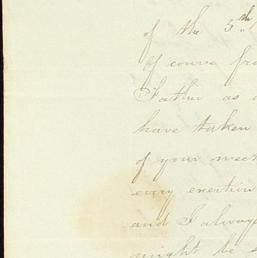 of the 5th
Of course fro
Father as
have taken
of your meet
every exertion
and I always
might be s